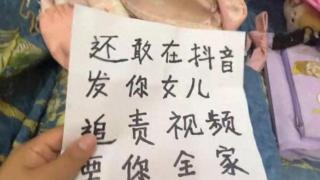 还敢在抖音
发你女儿
追责视频
要你全家